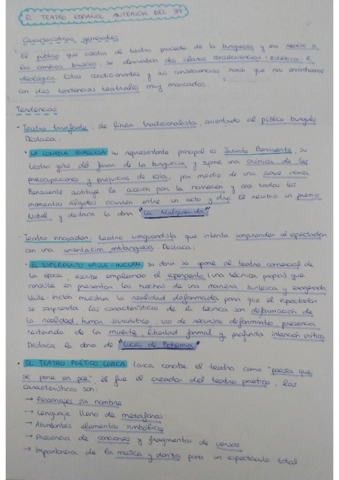 EL TEATRO ESPAÑOL ANTERIOR DEL 39
Características generales
El público que acudía al teatro procedía de la burguesía y no
los cambios bruscos, se derivaban dos claras consecuencias: estética e
ideológica. Estas condicionantes y sus consecuencias hacen que nos encontremos
con dos tendencias teatrales muy marcadas.
Tendencias
• Teatro triunfante, de línea tradicionalista, orientado al público burgués
Destaca:
• LA COMEDIA BURGUESA su representante principal es Jacinto Benavente, su
teatro gira del favor de la burguesía, y supone una crónica de las
preocupaciones y prejuicios de ésta, por medio de una
Benavente sustituye la acción por la narración y casi todos los
momentos álgidos ocurren entre un acto y otro. Él recibió un premio
Nobel, y destaca la obra "La Malquerida"
• Teatro innovador, teatro vanguardista que intenta sorprender al espectador
con una orientación antiburguesa. Destaca:
• EL ESPERPENTO (VALLE-INCLÁN) su obra se opone al teatro comercial de
la época. Escribe empleando el esperpento (una técnica propia) que
consiste en presentar los hechos de una manera grotesca y exagerada
Valle-Inclán muestra la realidad deformada para que el espectador
se sorprenda. Las características de la técnica son deformación de
la realidad, humor, caricatura, uso de recursos deformantes, presencia
reiterada de la muerte, libertad formal y profunda intención crítica
Destaca la obra de "Luces de Bohemia"
• EL TEATRO POÉTICO (LORCA) Lorca concibe el teatro como "poesía que
se pone en pie", él fue el creador del teatro poético, las
características son:
→ Personajes sin nombre
→ Lenguaje lleno de metáforas
→ Abundantes elementos simbólicos
→ Presencia de canciones y fragmentos de versos
→ Importancia de la música y danza para un espectáculo total